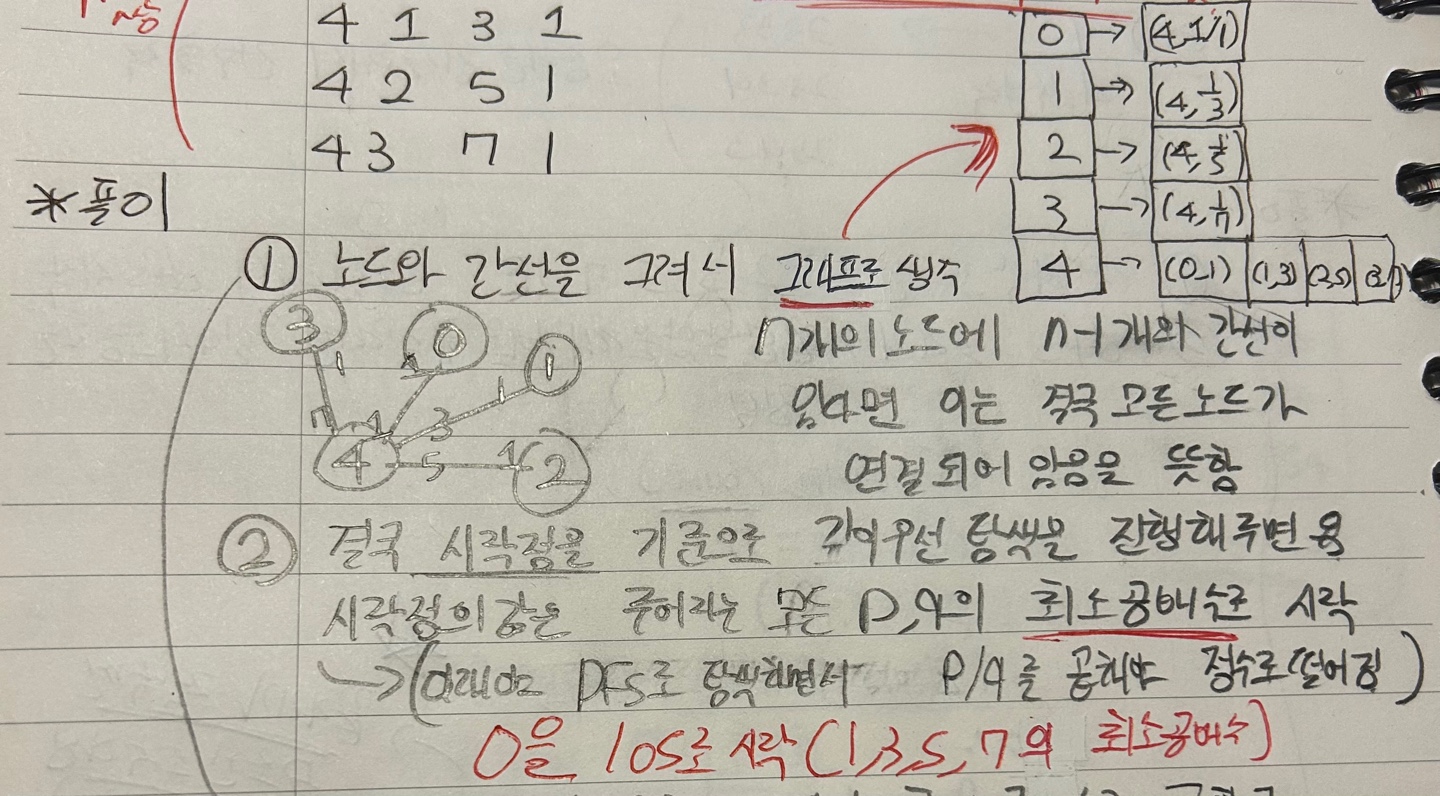 4 1 3 1
4 2 5 1
4 3 7 1
0 → (4, 1/1)
1 → (4, 1/3)
2 → (4, 1/5)
3 → (4, 1/7)
4 → (0,1) (1,3) (2,5)
*풀이
① 노드와 간선을 그려서 그래프로 생각
n개의 노드에 n-1개의 간선이
있다면 이는 결국 모든 노드가
연결되어 있음을 뜻함
3 0 1
1 1 1
7 1 3
4 5 1 2
② 결국 시작점을 기준으로 깊이우선 탐색을 진행해주면 용
시작점의 값은 주어지는 모든 P,q의 최소공배수로 시작
↳ (이래야 DFS로 탐색하면서 P/q를 곱해야 정수로 떨어짐)
0을 105로 시작 (1,3,5,7의 최소공배수)